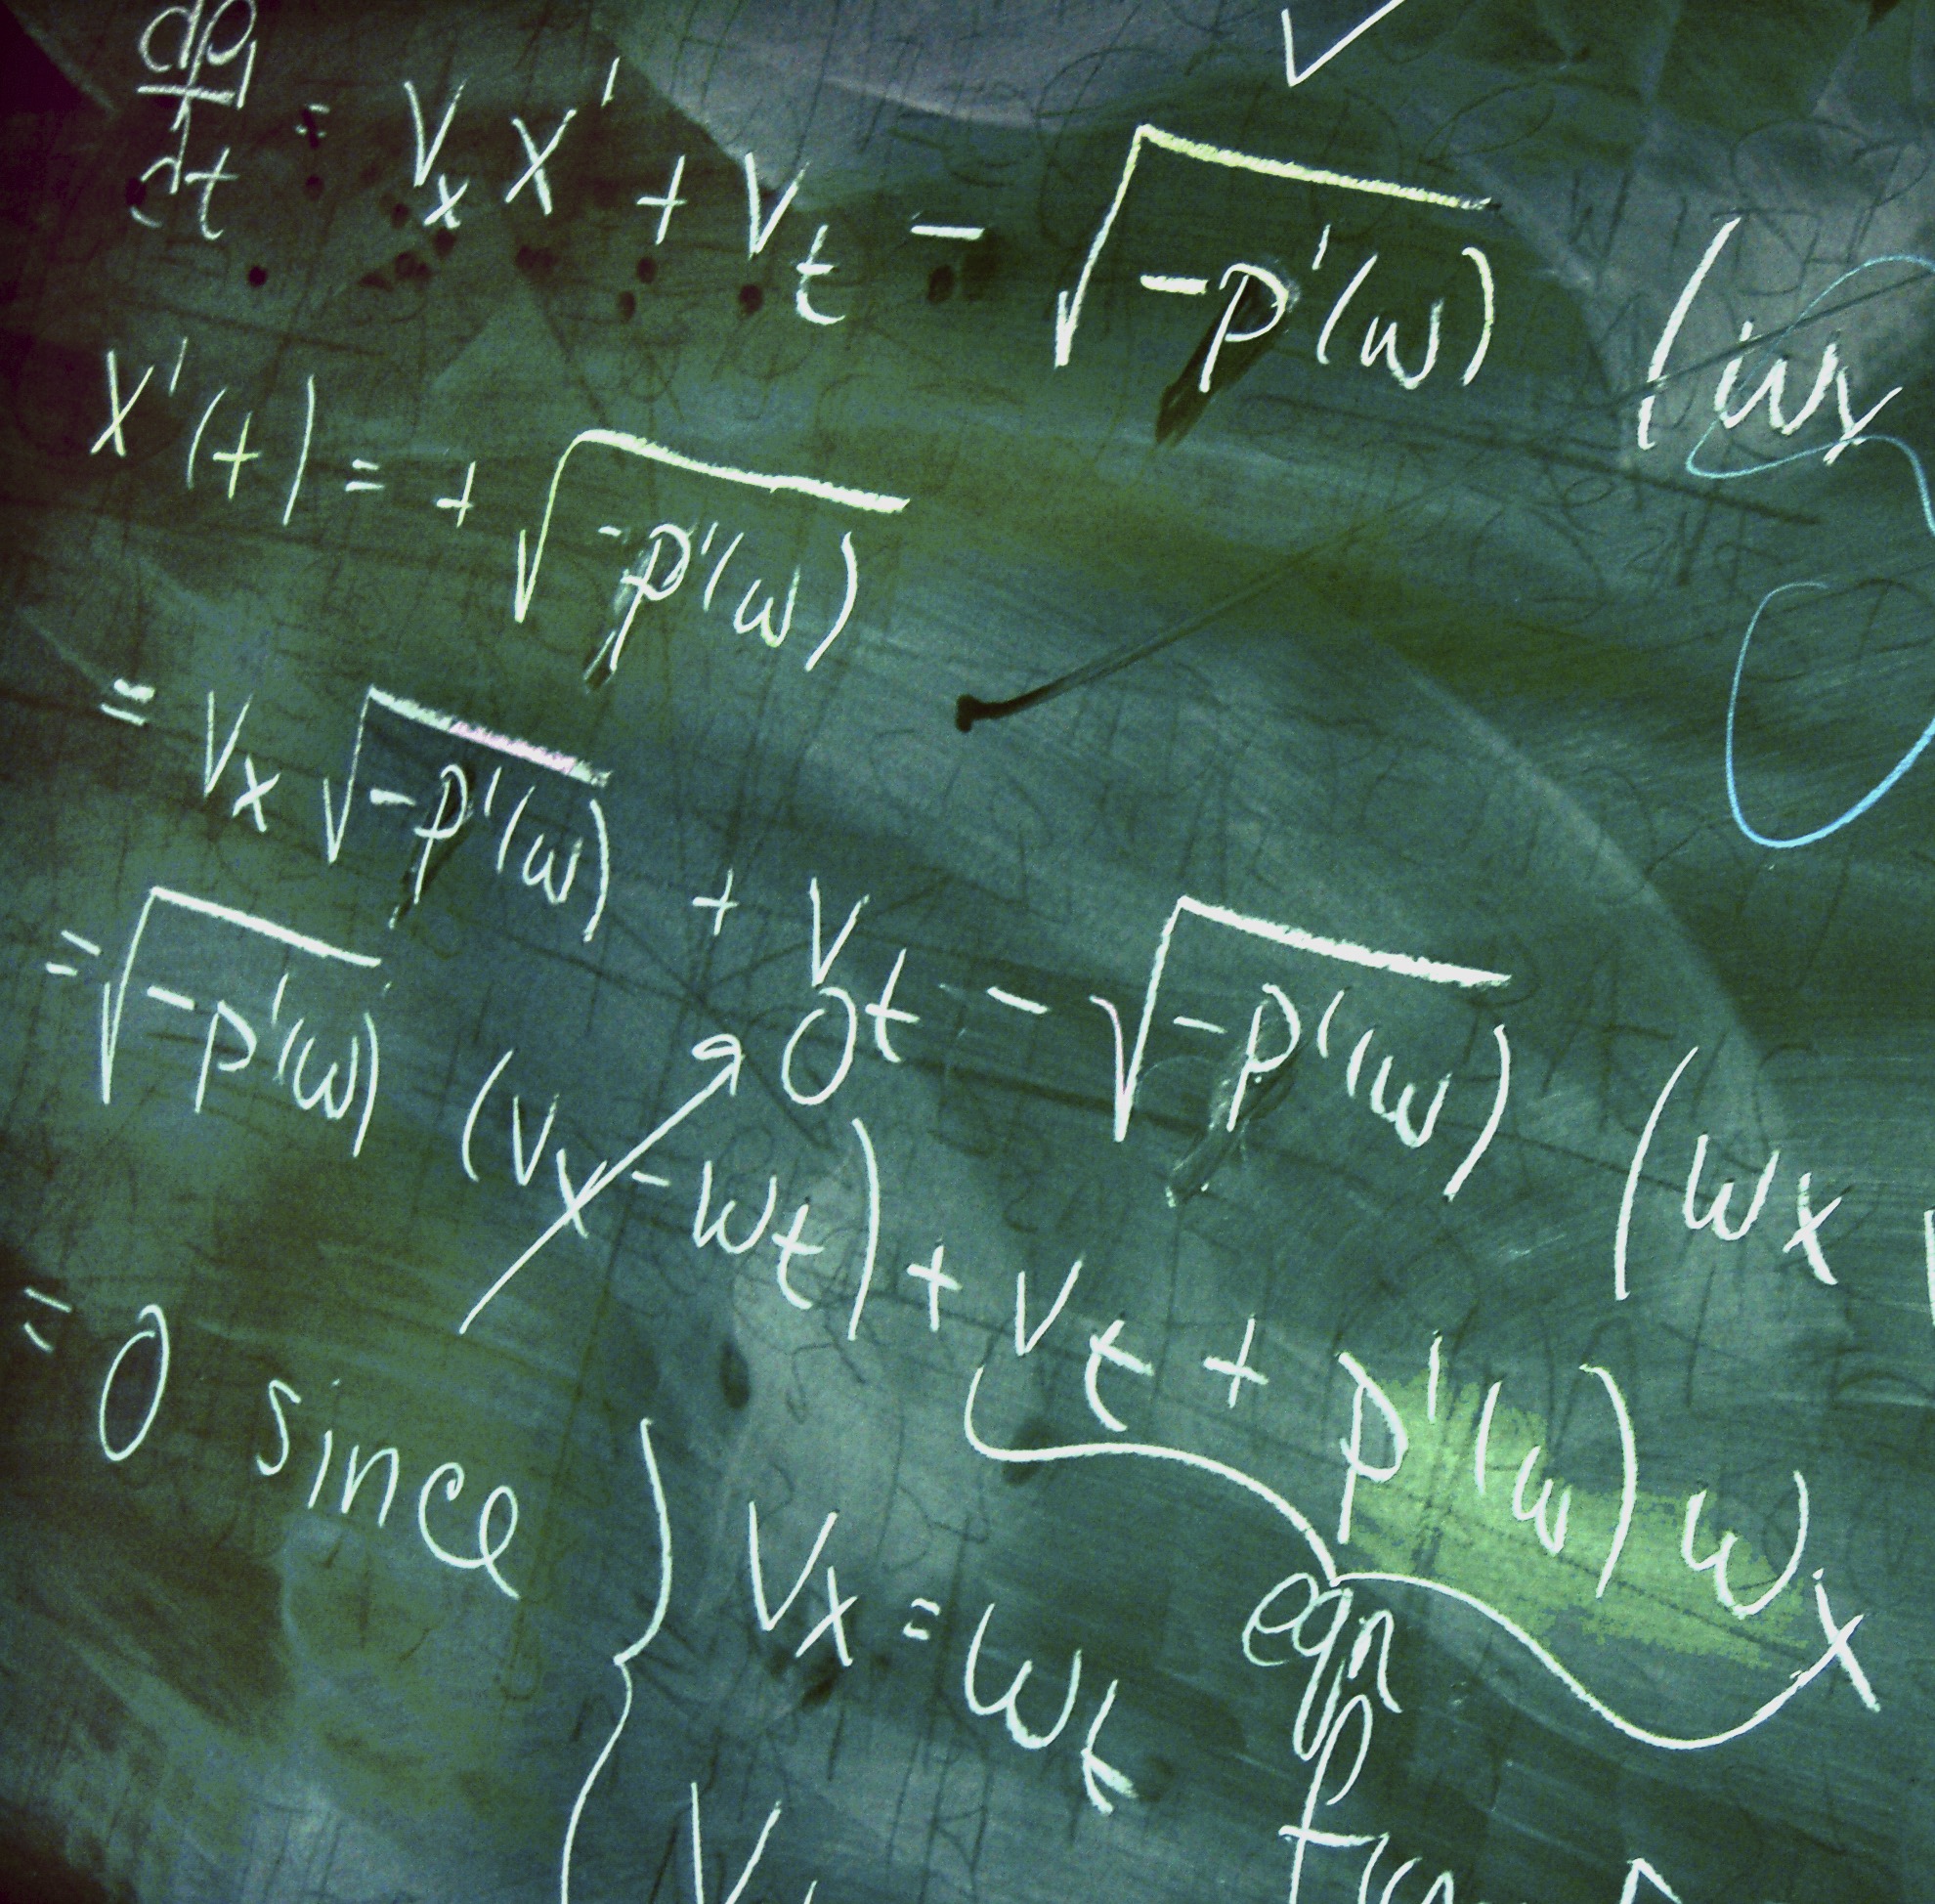 dρ₁/dt = Vₓ X' + Vₜ − √(−p'(w)) (wₓ
X'(t) = + √(−p'(w))
= Vₓ √(−p'(w)) + Vₜ − √(−p'(w)) (wₓ
= √(−p'(w)) (Vₓ − wₜ) + Vₜ + p'(w) wₓ
0
= 0 since { Vₓ = wₜ
eqn
V